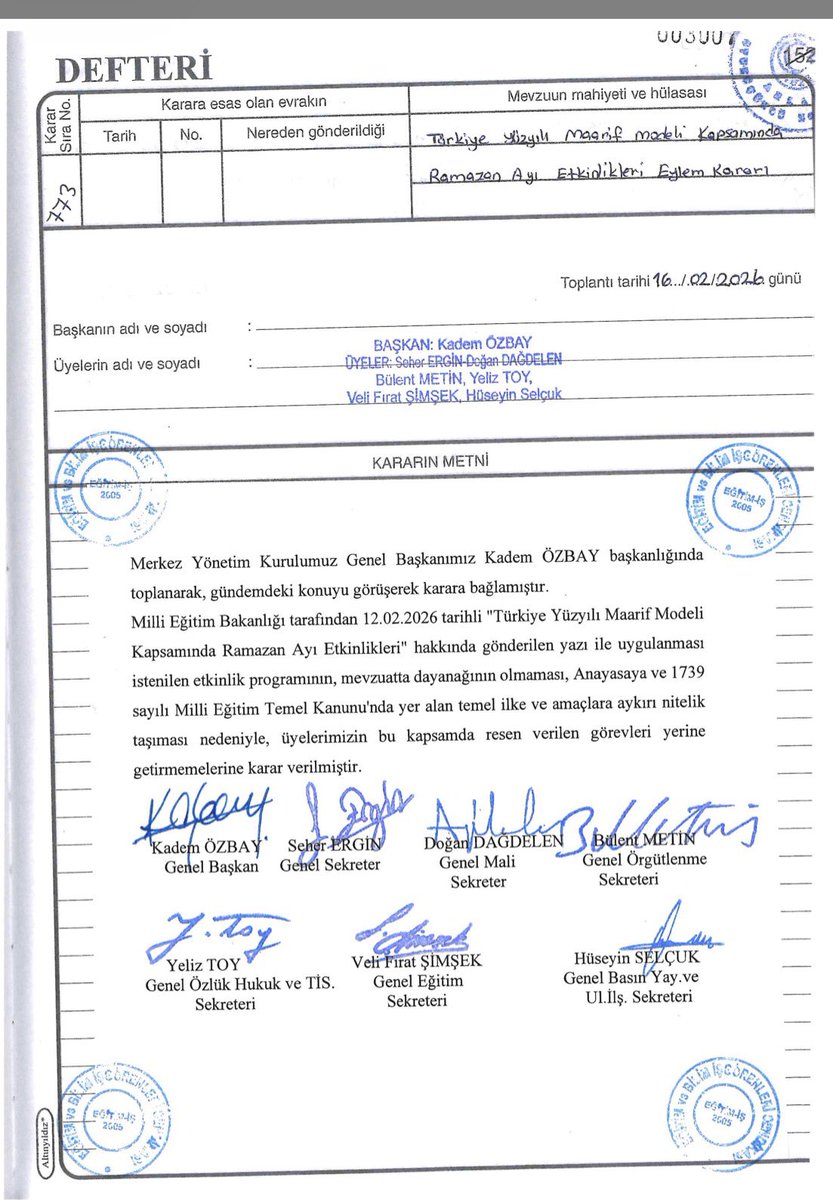 003007
152
DEFTERİ
Karar
Sıra No.
Karara esas olan evrakın
Mevzuun mahiyeti ve hülasası
Tarih
No.
Nereden gönderildiği
Türkiye Yüzyılı Maarif Modeli Kapsamında
Ramazan Ayı Etkinlikleri Eylem Kararı
773
Toplantı tarihi 16../.02/2026 günü
Başkanın adı ve soyadı :
BAŞKAN: Kadem ÖZBAY
Üyelerin adı ve soyadı :
ÜYELER: Seher ERGİN-Doğan DAĞDELEN
Bülent METİN, Yeliz TOY,
Veli Fırat ŞİMŞEK, Hüseyin Selçuk
KARARIN METNİ
EĞİTİM ve BİLİM İŞGÖRENLERİ
EĞİTİM-İŞ
2005
EĞİTİM ve BİLİM İŞGÖRENLERİ
EĞİTİM-İŞ
2005
Merkez Yönetim Kurulumuz Genel Başkanımız Kadem ÖZBAY başkanlığında
toplanarak, gündemdeki konuyu görüşerek karara bağlamıştır.
Milli Eğitim Bakanlığı tarafından 12.02.2026 tarihli "Türkiye Yüzyılı Maarif Modeli
Kapsamında Ramazan Ayı Etkinlikleri" hakkında gönderilen yazı ile uygulanması
istenilen etkinlik programının, mevzuatta dayanağının olmaması, Anayasaya ve 1739
sayılı Milli Eğitim Temel Kanunu'nda yer alan temel ilke ve amaçlara aykırı nitelik
taşıması nedeniyle, üyelerimizin bu kapsamda resen verilen görevleri yerine
getirmemelerine karar verilmiştir.
Kadem ÖZBAY
Genel Başkan
Seher ERGİN
Genel Sekreter
Doğan DAĞDELEN
Genel Mali
Sekreter
Bülent METİN
Genel Örgütlenme
Sekreteri
Y. Toy
Yeliz TOY
Genel Özlük Hukuk ve TİS.
Sekreteri
Veli Fırat ŞİMŞEK
Genel Eğitim
Sekreteri
Hüseyin SELÇUK
Genel Basın Yay.ve
Ul.İlş. Sekreteri
Altınyıldız
EĞİTİM ve BİLİM İŞGÖRENLERİ
EĞİTİM-İŞ
2005
EĞİTİM ve BİLİM İŞGÖRENLERİ
EĞİTİM-İŞ
2005